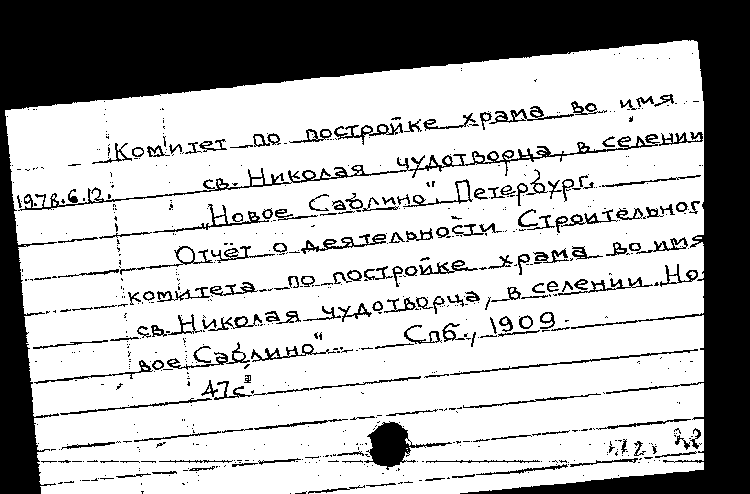 Комитет по постройке храма во имя
св. Николая чудотворца, в селении
19.78.6.12.
„Новое Саблино". Петербург.
Отчёт о деятельности Строительног
комитета по постройке храма во имя
св. Николая чудотворца, в селении „Но-
вое Саблино"... Спб., 1909.
47с.